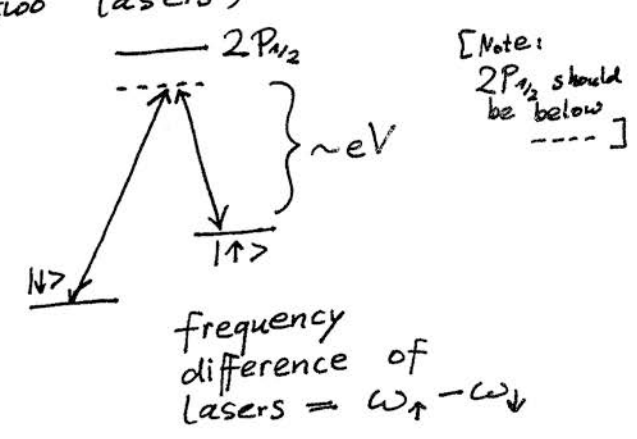 two lasers)
2P1/2
[Note:
2P1/2 should
be below
---- ]
~eV
|↑>
|↓>
frequency
difference of
lasers = ω↑ - ω↓